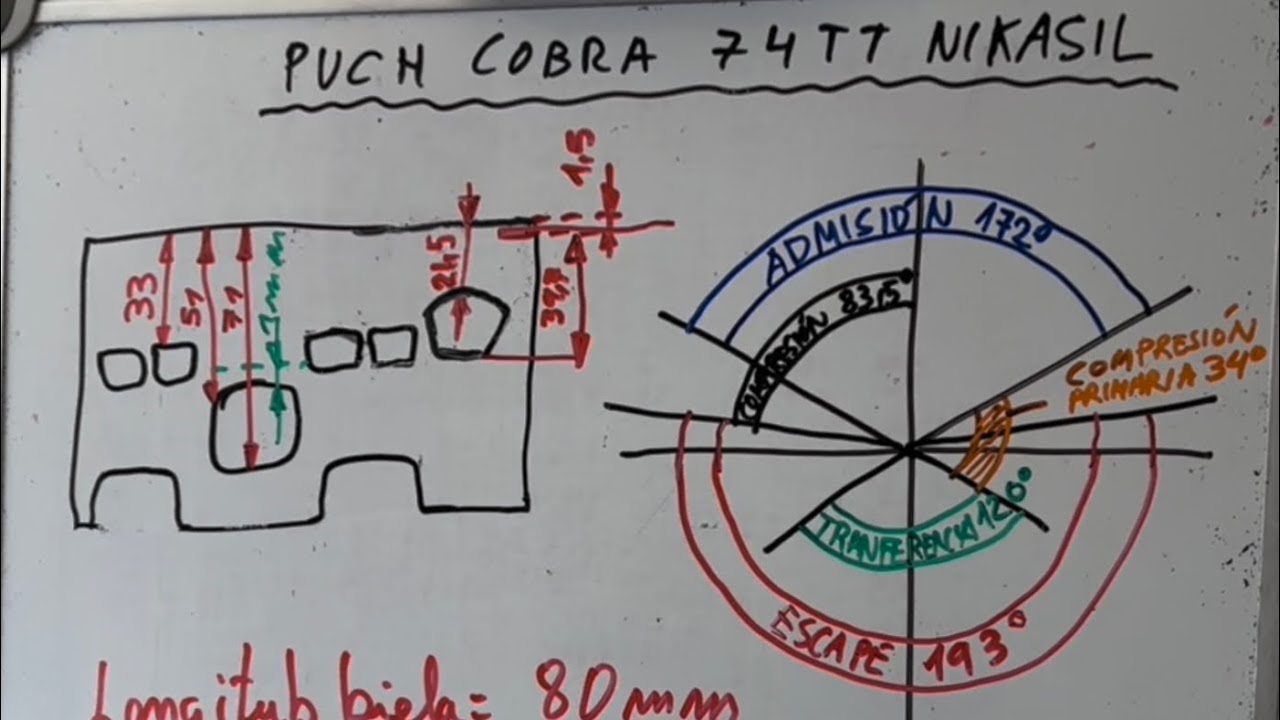 PUCH COBRA 74TT NIKASIL
1,5
33
51
71
24,5
ADMISIÓN 172º
COMPRESIÓN 83,5º
COMPRESIÓN
PRIMARIA 34º
TRANFERENCIA 120º
ESCAPE 193º
Longitub biela= 80mm